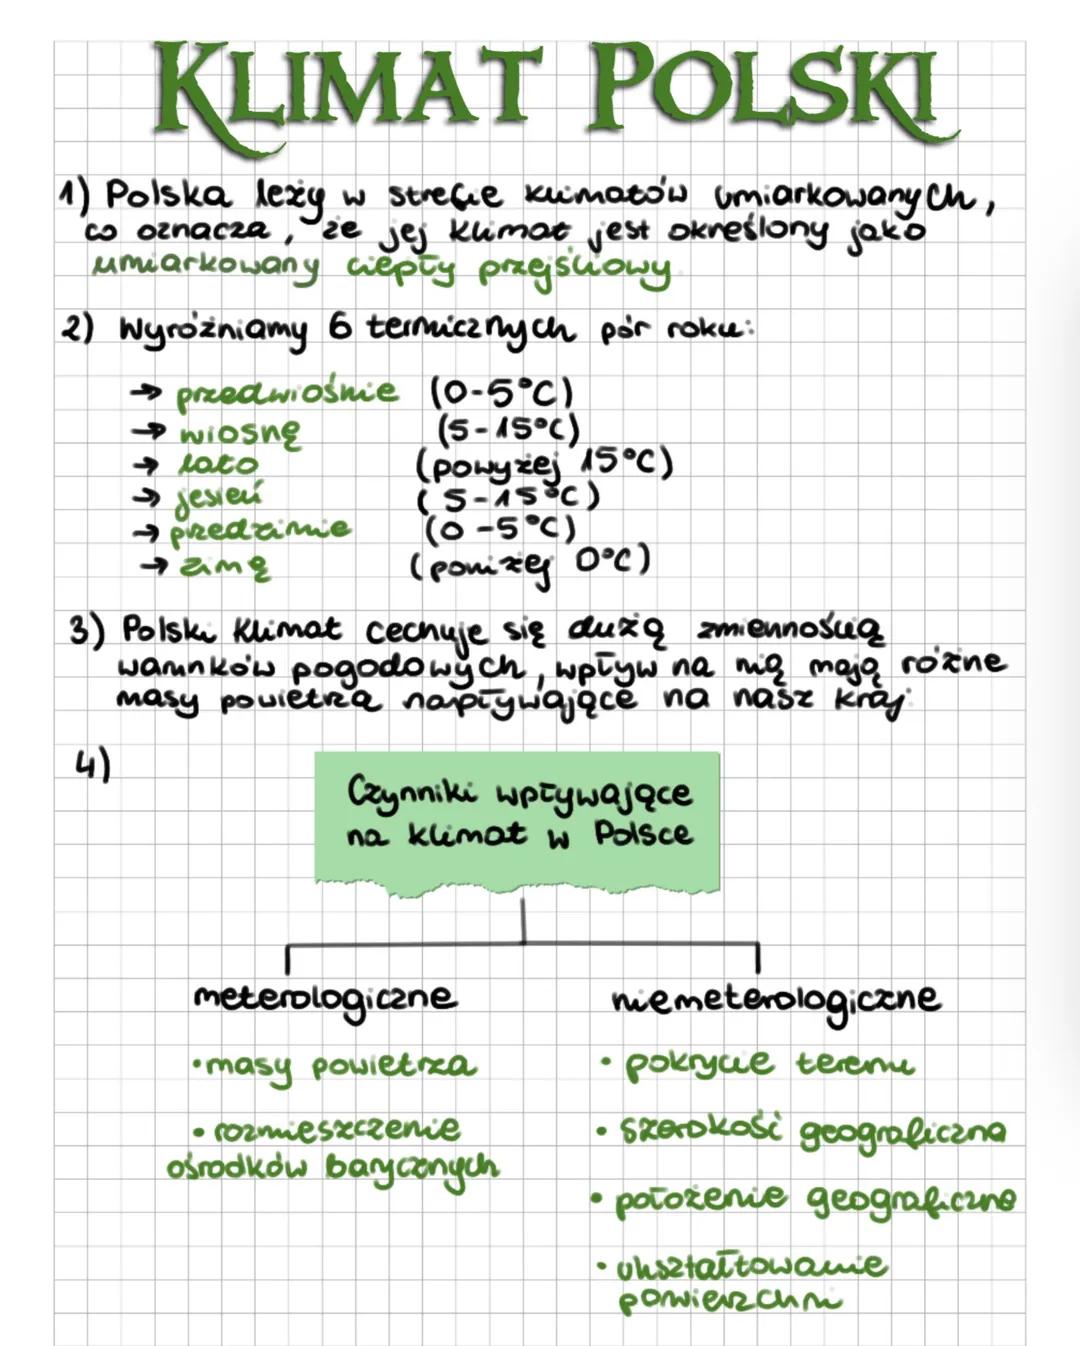 KLIMAT POLSKI
1) Polska leży w strefie klimatów umiarkowanych,
co oznacza, że jej klimat jest określony jako
umiarkowany ciepły przejściowy
2) Wyróżniamy 6 termicznych pór roku:
→ przedwiośnie (0-5°C)
→ wiosnę (5-15°C)
→ lato (powyżej 15°C)
→ jesień (5-15°C)
→ przedzimie (0-5°C)
→ zimę (poniżej 0°C)
3) Polski klimat cechuje się dużą zmiennością
warunków pogodowych, wpływ na nią mają różne
masy powietrza napływające na nasz kraj.
4)
Czynniki wpływające
na klimat w Polsce
meterologiczne
niemeterologiczne
• masy powietrza
• rozmieszczenie
ośrodków barycznych
• pokrycie terenu
• szerokość geograficzna
• położenie geograficzne
• ukształtowanie
powierzchni